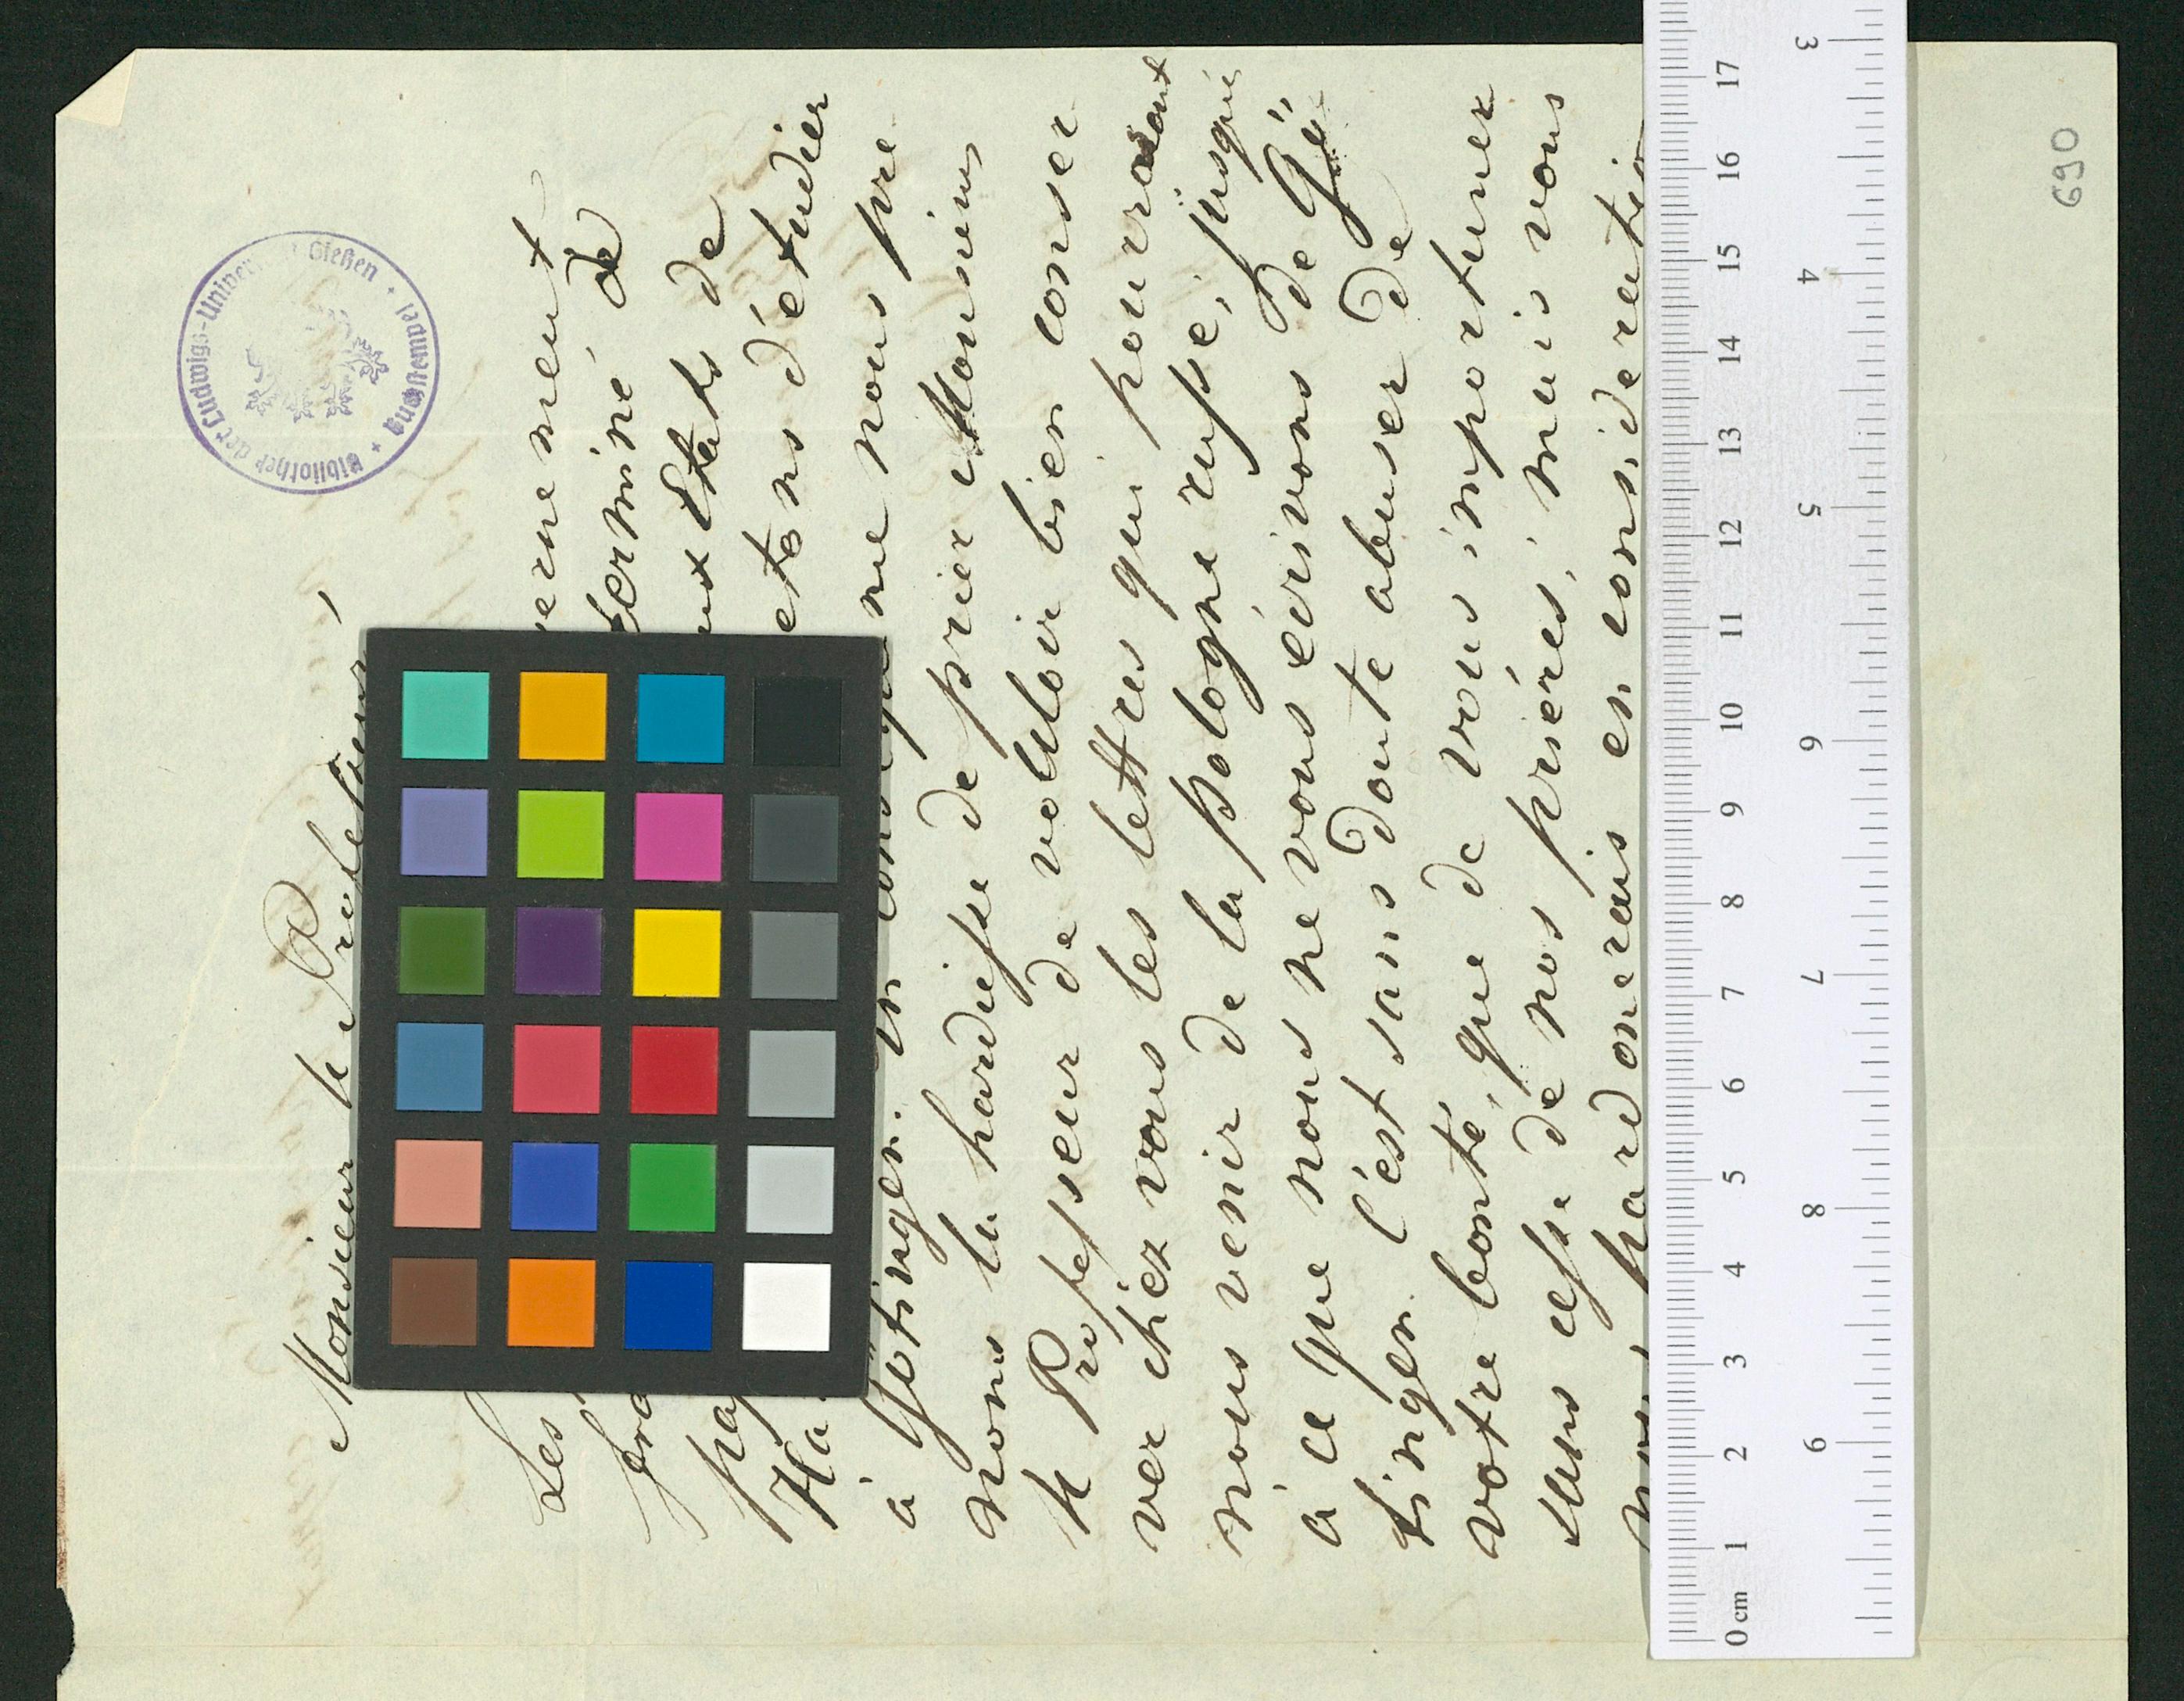 690
Bibliothek der Ludwigs-Univer Gießen
Tauschstempel
Monsieur le Professeur,
Les ernement
terminé, de
aux Etats de
Ha etons d'étudier
à Götingen. En ne nous pre
nons la hardiesse de prier Monsieur
le Professeur de vouloir bien conser
ver chéz vous les lettres qui pourront
nous venir de la Pologne russe, jusqu'
à ce que nous ne vous écrivons de Gö
tingen. C'est sans doute abuser de
votre bonté, que de vous importuner
sans cesse de nos priéres, mais vous
nous pardonerais en consideratio
0 cm 1 2 3 4 5 6 7 8 9 10 11 12 13 14 15 16 17
3 4 5 6 7 8 9